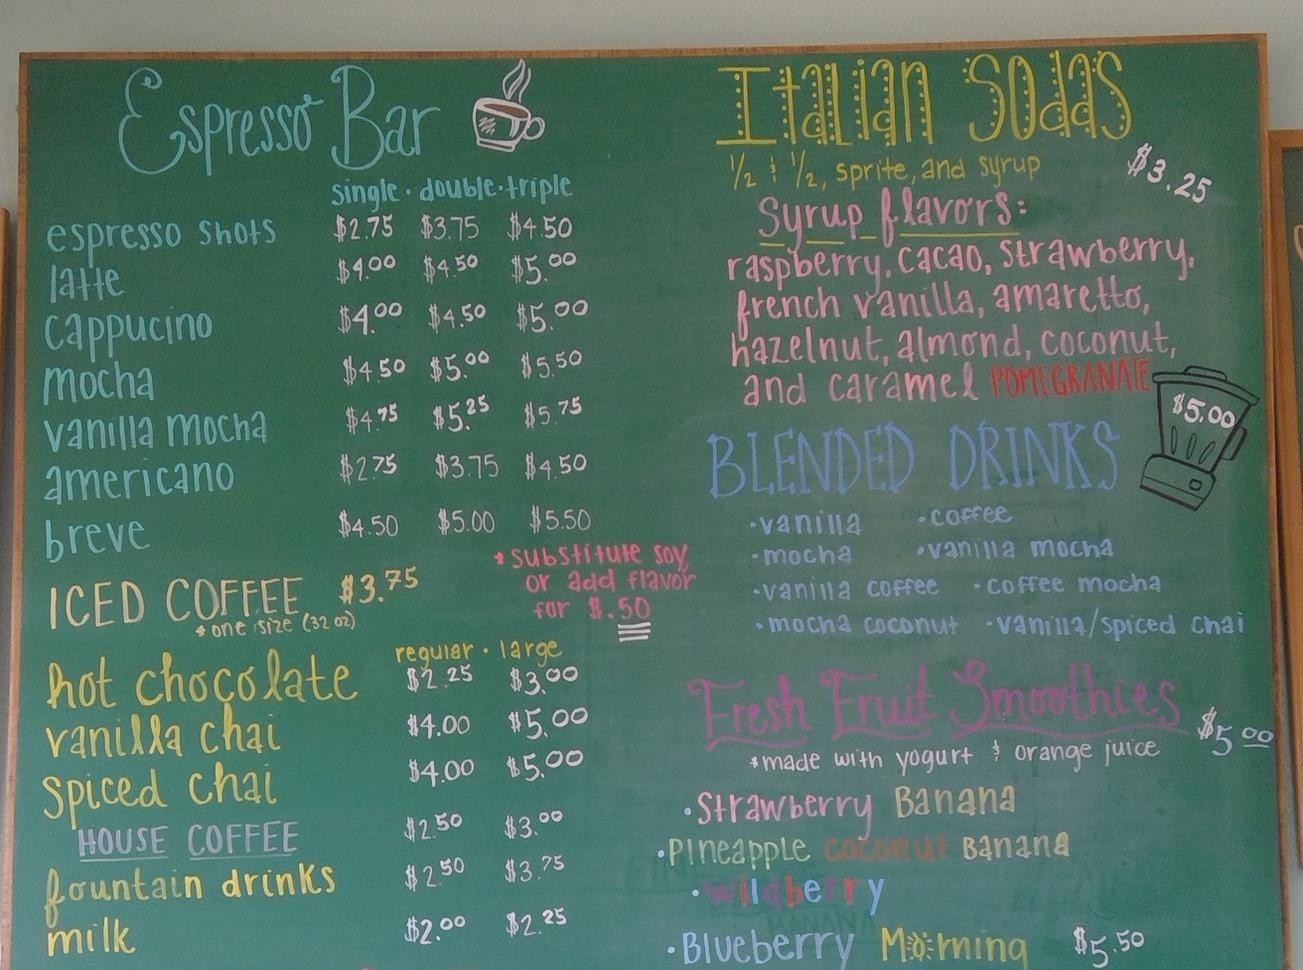 Espresso Bar
single · double · triple
espresso shots $2.75 $3.75 $4.50
latte $4.00 $4.50 $5.00
cappucino $4.00 $4.50 $5.00
mocha $4.50 $5.00 $5.50
vanilla mocha $4.75 $5.25 $5.75
americano $2.75 $3.75 $4.50
breve $4.50 $5.00 $5.50
* substitute soy,
or add flavor
for $.50
ICED COFFEE $3.75
* one size (32 oz)
regular · large
hot chocolate $2.25 $3.00
vanilla chai $4.00 $5.00
spiced chai $4.00 $5.00
HOUSE COFFEE $2.50 $3.00
fountain drinks $2.50 $3.75
milk $2.00 $2.25
Italian Sodas
1/2 & 1/2, sprite, and syrup $3.25
Syrup flavors:
raspberry, cacao, strawberry,
french vanilla, amaretto,
hazelnut, almond, coconut,
and caramel POMEGRANATE
$5.00
BLENDED DRINKS
· vanilla · coffee
· mocha · vanilla mocha
· vanilla coffee · coffee mocha
· mocha coconut · vanilla/spiced chai
Fresh Fruit Smoothies $5.00
*made with yogurt & orange juice
· Strawberry Banana
· Pineapple coconut Banana
· wildberry
BANANA
· Blueberry Morning $5.50